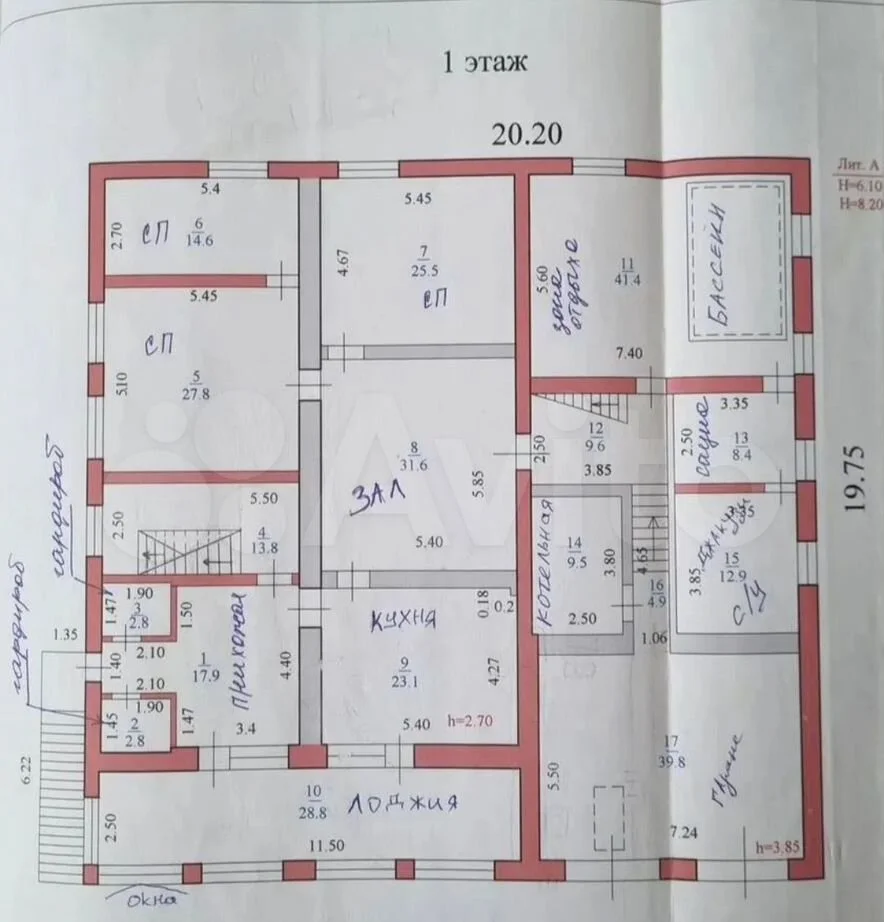 1 этаж
20.20
Лит. А
H=6.10
H=8.20
5.4
2.70
СП
6
14.6
5.45
4.67
7
25.5
СП
5.60
зона
отдыха
11
41.4
БАССЕЙН
7.40
5.45
СП
5.10
5
27.8
8
31.6
ЗАЛ
5.85
5.40
2.50
12
9.6
3.85
3.35
2.50
сауна
13
8.4
19.75
гардироб
гардироб
2.50
5.50
4
13.8
котельная
14
9.5
3.80
2.50
4.65
16
4.9
1.06
3.85
15
12.9
С/У
1.90
1.47
3
2.8
1.50
1.35
1.40
2.10
2.10
1
17.9
прихожая
4.40
3.4
1.90
1.45
2
2.8
1.47
КУХНЯ
0.18
0.2
9
23.1
4.27
5.40
h=2.70
6.22
2.50
10
28.8
ЛОДЖИЯ
11.50
5.50
17
39.8
7.24
h=3.85
окна
Avito